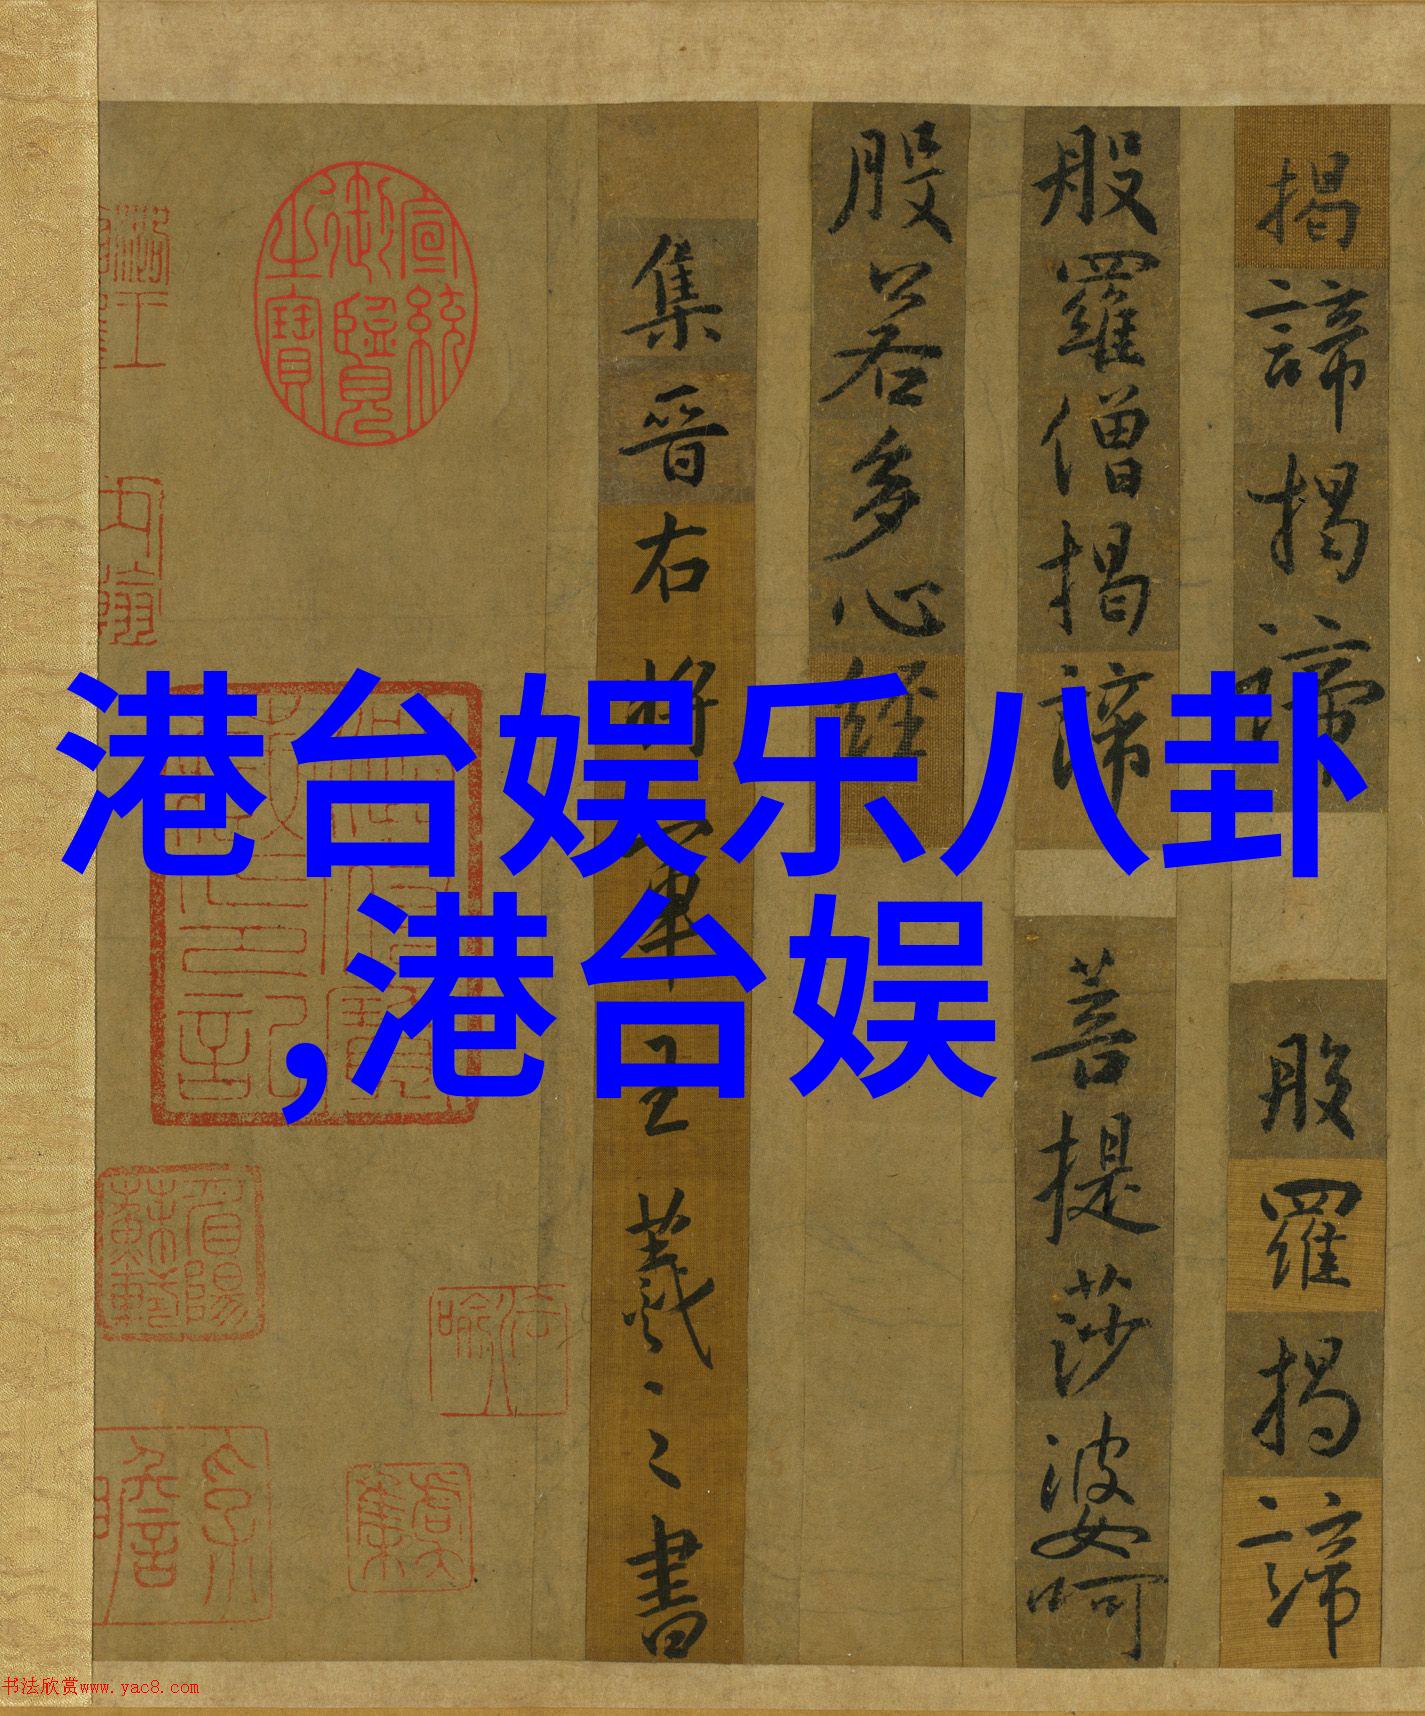 港台娱乐八卦
,港台娱
揭諦揭諦 般羅揭諦
般羅僧揭諦 菩提莎婆呵
般若多心經
集晉右將軍王羲之書
宣統御覽之寶
书法欣赏www.yac8.com